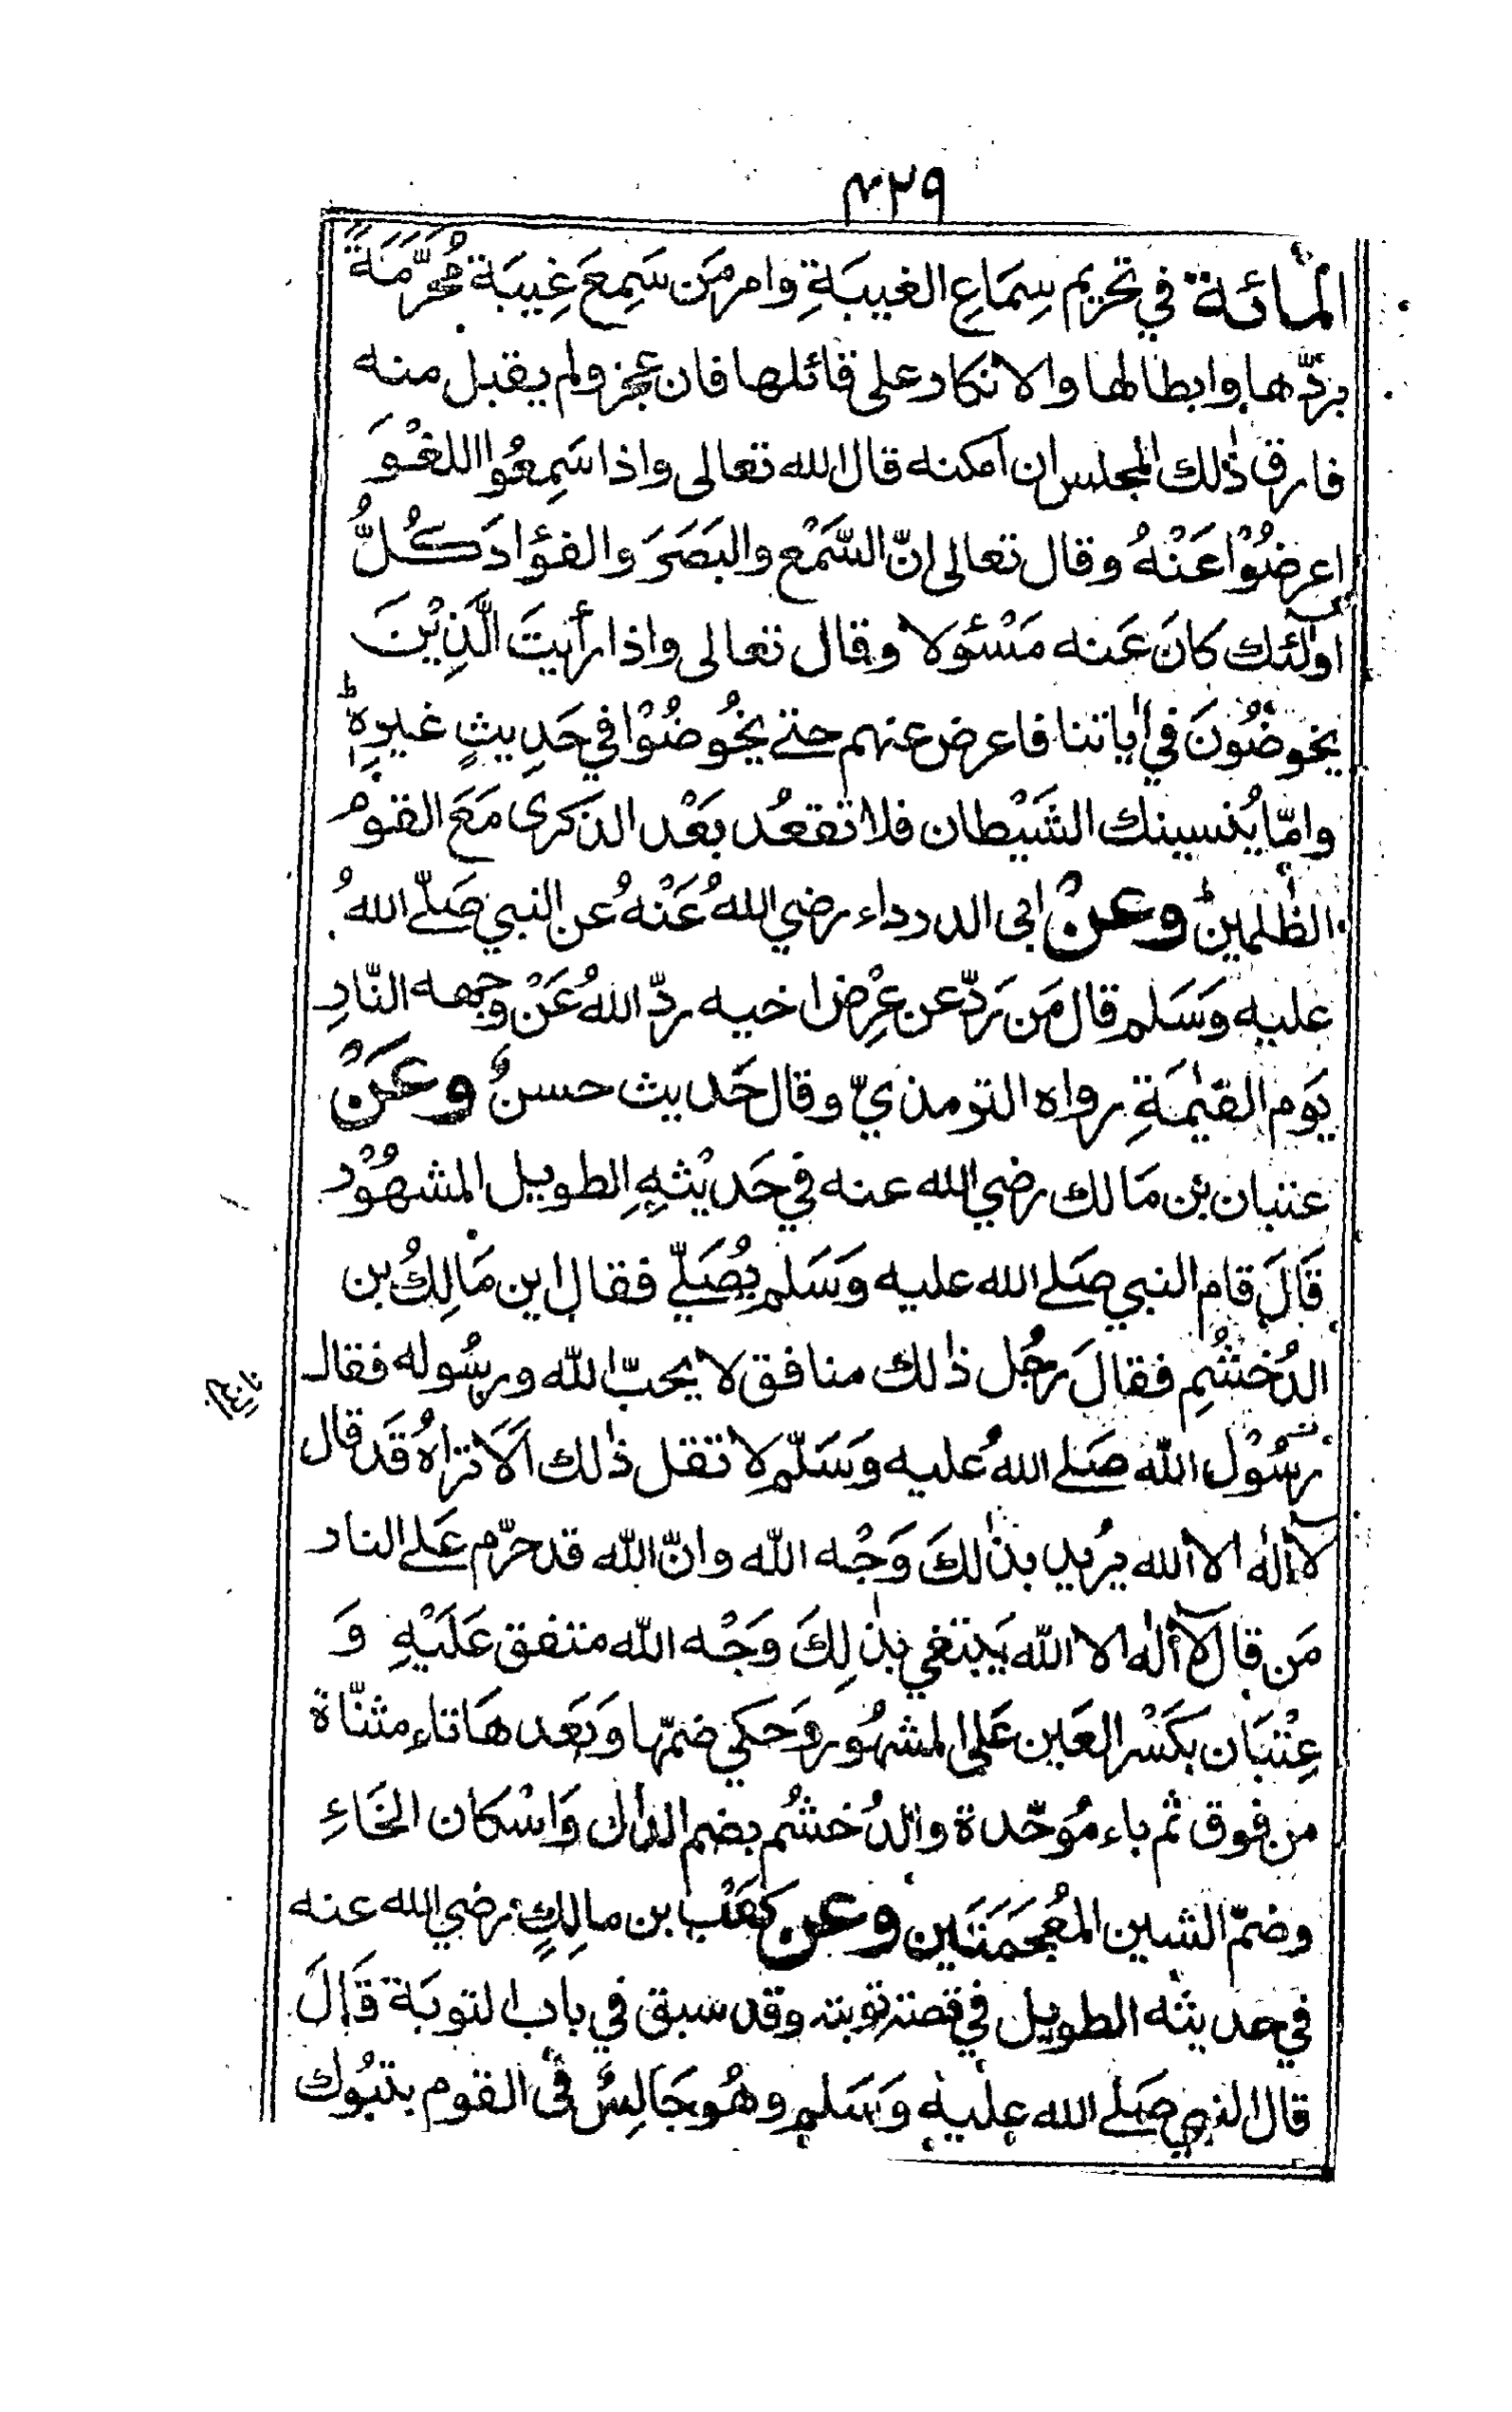 ٤٢٩
المائة في تحريم سِمَاعِ الغيبَةِ وامر مَن سَمِعَ غِيبَة مُحَرَّمَةً
بردّها وابطالها والانكار على قائلها فان عجز ولم يقبل منه
فارق ذٰلك المجلس ان اَمكنه قال الله تعالى واذا سَمِعُوا اللغْوَ
اعرضُوْا عَنْهُ وقال تعالى انّ السَّمْع والبَصَرَ والفؤادَ كُلُّ
اولٰئك كانَ عَنه مَسْئولا وقال تعالى واذا رأيتَ الَّذِيْنَ
يخوضُونَ في اٰياتنا فاعرض عنهم حتى يَخُوضُوْا في حَدِيثٍ غيرِهٖ ط
وامّا يُنسينك الشَيْطان فلا تقعُد بَعْد الذكرى مَعَ القوم
الظٰلمين وعنْ ابى الدرداء رضي اللهُ عَنْهُ عن النبي صَلّى اللهُ
عليه وَسَلم قال مَن رَدّ عن عِرْض اخيه ردّ اللهُ عَنْ وجهه النّارِ
يَوم القيٰمَةِ رواه الترمذيّ وقال حَديث حسنٌ وعَنْ
عتبان بْن مَالك رضي الله عنه في حَديْثهِ الطويل المشهُوْر
قَالَ قام النبي صَلى الله عليه وَسَلم يُصَلّي فقال اين مَالِكُ بن
الدُخشُمِ فقالَ رجُل ذٰلك منافق لا يحبّ الله ورسُوله فقال
رَسُوْل الله صَلى اللهُ عليه وَسَلّم لا تقل ذٰلك اَلَا تراهُ قَد قال
لا اله الا الله يُريد بذٰلكَ وَجْه الله وانّ الله قد حرّم عَلى النار
مَن قال لا اله الا الله يَبتغي بذٰلِكَ وَجْه الله متفق عَلَيْهِ وَ
عِتْبَان بكَسْر العَين عَلى المشهُور وَحكي ضمّها وَبَعَدها تاء مثنّاة
من فوق ثم باء مُوَحّدة والدُخشُم بضم الدال وَاسْكان الخَاءِ
وضمّ الشين المعُجَمَتَين وعن كَعْب بن مالِكٍ رضي الله عنه
في حديثه الطويل في قصة توبته وقد سبق في باب التوبَة قَالَ
قال النبي صَلى الله عليه وَسَلم وهُو جَالِسٌ فى القوم بتبُوك